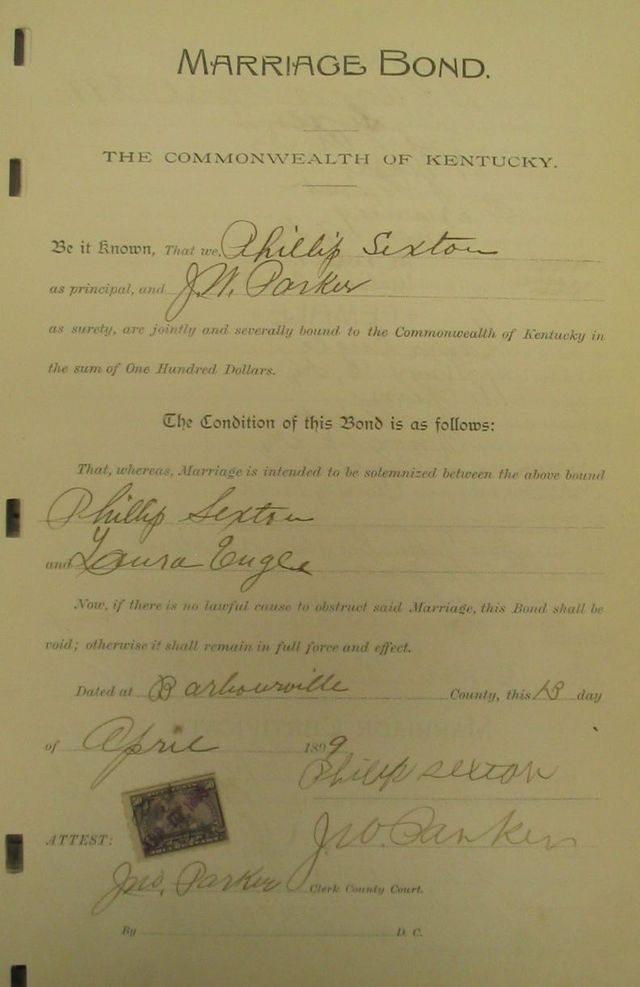 MARRIAGE BOND.
THE COMMONWEALTH OF KENTUCKY.
Be it Known, That we, Phillip Sexton
as principal, and J. W. Parker
as surety, are jointly and severally bound to the Commonwealth of Kentucky in
the sum of One Hundred Dollars.
The Condition of this Bond is as follows:
That, whereas, Marriage is intended to be solemnized between the above bound
Phillip Sexton
and Laura Engle
Now, if there is no lawful cause to obstruct said Marriage, this Bond shall be
void; otherwise it shall remain in full force and effect.
Dated at Barbourville County, this 13 day
of April 1899
Philip Sexton
ATTEST: J. W. Parker
Jno. Parker Clerk County Court.
By D. C.